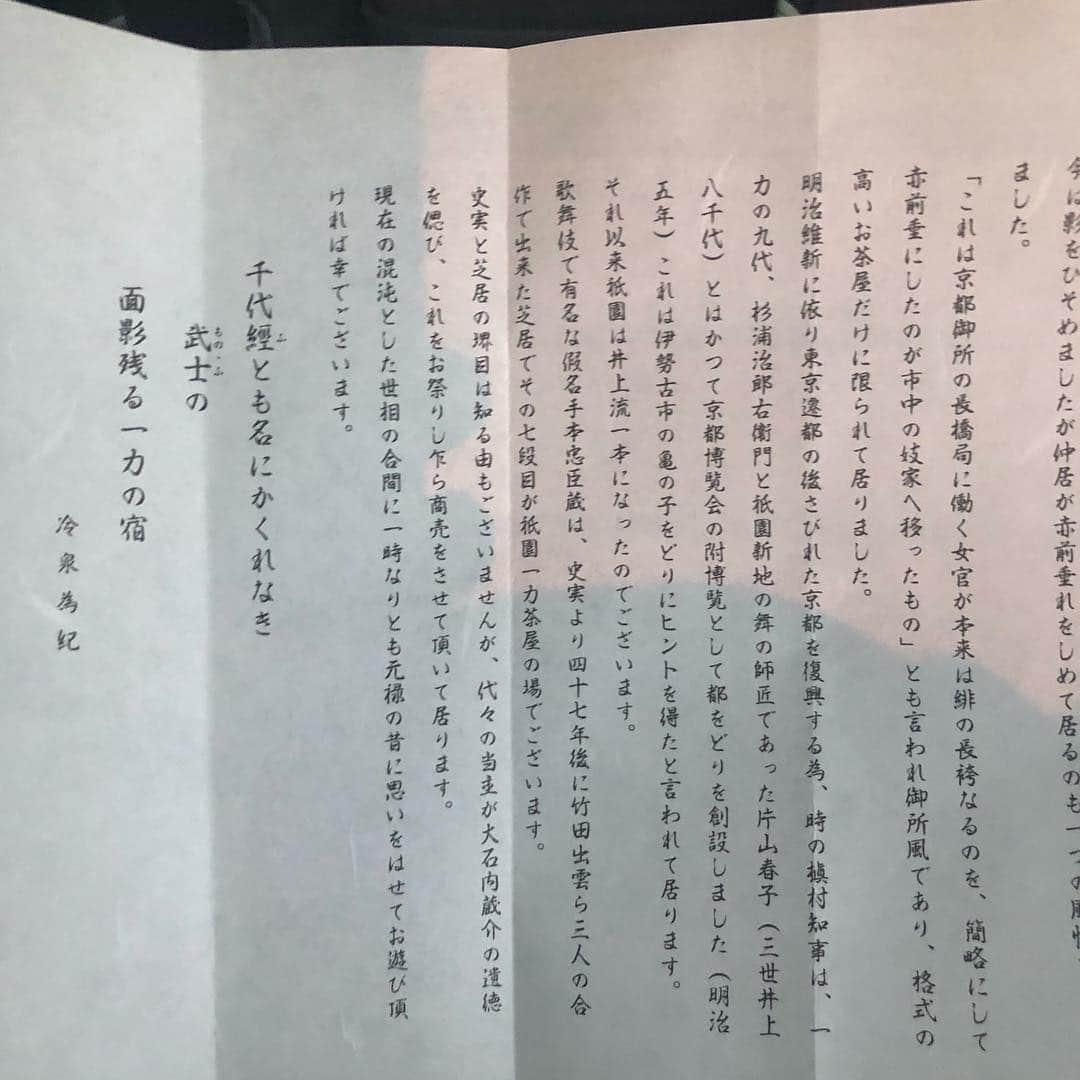 今は影をひそめましたが仲居が赤前垂れをしめて居るのも一つの風情
ました。
「これは京都御所の長橋局に働く女官が本来は緋の長袴なるのを、簡略にして
赤前垂にしたのが市中の妓家へ移ったもの」とも言われ御所風であり、格式の
高いお茶屋だけに限られて居りました。
明治維新に依り東京遷都の後さびれた京都を復興する為、時の槇村知事は、一
力の九代、杉浦治郎右衛門と祇園新地の舞の師匠であった片山春子（三世井上
八千代）とはかつて京都博覧会の附博覧として都をどりを創設しました（明治
五年）これは伊勢古市の亀の子をどりにヒントを得たと言われて居ります。
それ以来祇園は井上流一本になったのでございます。
歌舞伎で有名な假名手本忠臣蔵は、史実より四十七年後に竹田出雲ら三人の合
作で出来た芝居でその七段目が祇園一力茶屋の場でございます。
史実と芝居の堺目は知る由もございませんが、代々の当主が大石内蔵介の遺徳
を偲び、これをお祭りし乍ら商売をさせて頂いて居ります。
現在の混沌とした世相の合間に一時なりとも元禄の昔に思いをはせてお遊び頂
ければ幸でございます。
千代經とも名にかくれなき
ふ
武士の
ものゝふ
面影残る一力の宿
冷泉為紀